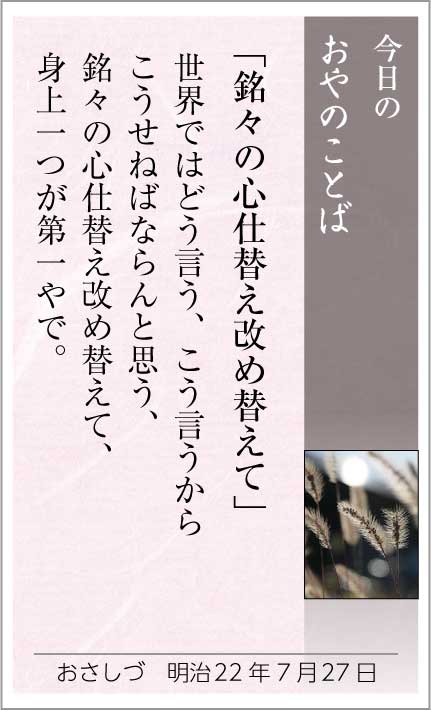 今日の
おやのことば
「銘々の心仕替え改め替えて」
世界ではどう言う、こう言うから
こうせねばならんと思う、
銘々の心仕替え改め替えて、
身上一つが第一やで。
おさしづ　明治22年7月27日